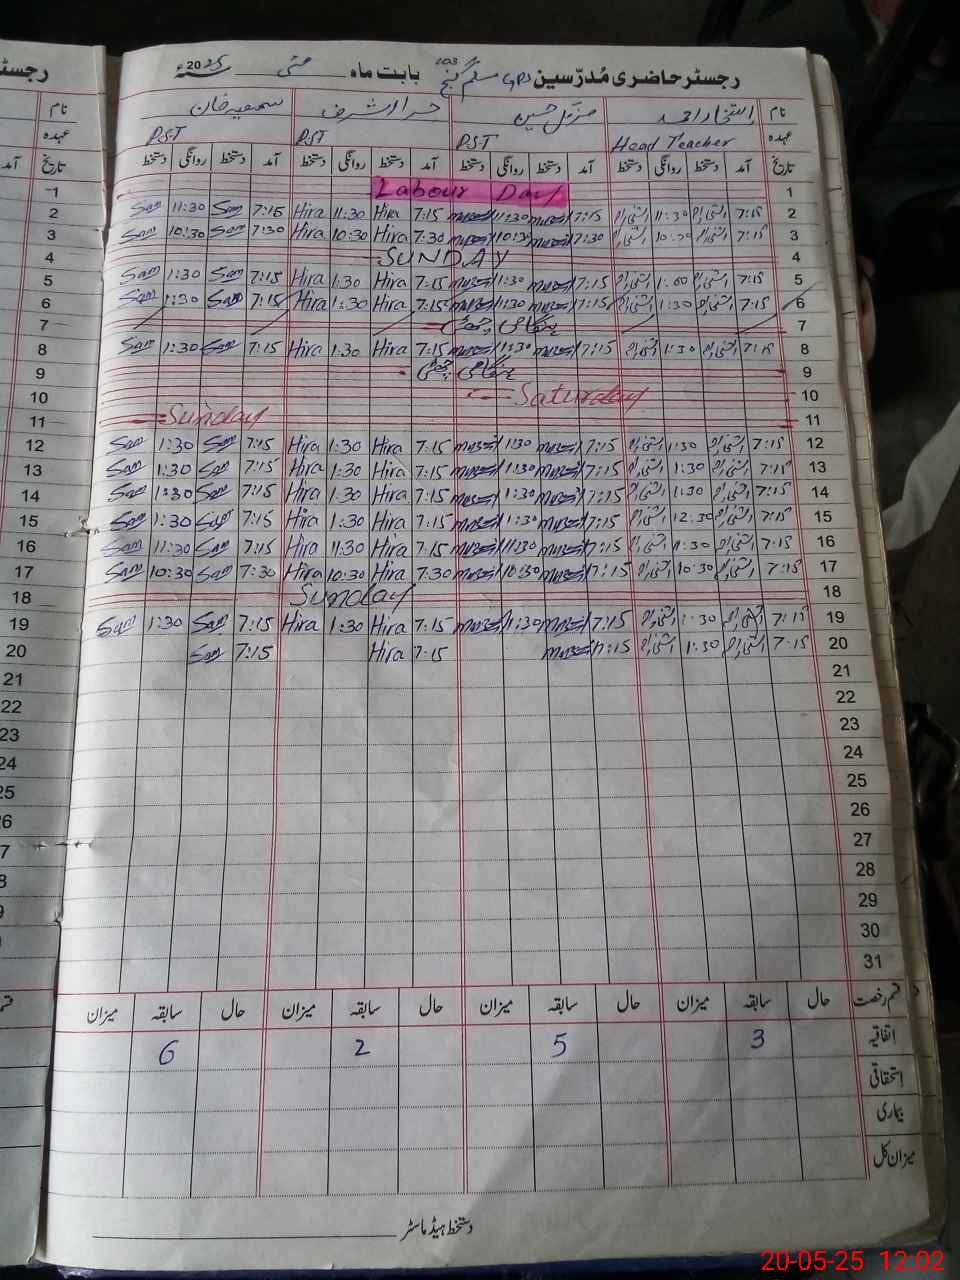 رجسٹر حاضری مُدرّسین GPS مسلم گنج 203 بابت ماہ مئی 2025ء
نام افتخار احمد مزمل حسین حرا اشرف سمعیہ خان
عہدہ Head Teacher PST PST PST
تاریخ آمد دستخط روانگی دستخط آمد دستخط روانگی دستخط آمد دستخط روانگی دستخط آمد دستخط روانگی دستخط
1 Labour Day
2 7:15 11:30 7:15 11:30 7:15 Hira 11:30 Hira 7:15 Sam 11:30 Sam
3 7:15 7:30 10:30 7:30 Hira 10:30 Hira 7:30 Sam 10:30 Sam
4 SUNDAY
5 7:15 7:15 1:30 7:15 Hira 1:30 Hira 7:15 Sam 1:30 Sam
6 7:15 1:30 7:15 1:30 7:15 Hira 1:30 Hira 7:15 Sam 1:30 Sam
7 ہنگامی چھٹی
8 7:15 1:30 7:15 1:30 7:15 Hira 1:30 Hira 7:15 Sam 1:30 Sam
9 ہنگامی چھٹی
10 Saturday
11 Sunday
12 7:15 1:30 7:15 1:30 7:15 Hira 1:30 Hira 7:15 Sam 1:30 Sam
13 7:15 1:30 7:15 1:30 7:15 Hira 1:30 Hira 7:15 Sam 1:30 Sam
14 7:15 1:30 7:15 1:30 7:15 Hira 1:30 Hira 7:15 Sam 1:30 Sam
15 7:15 12:30 7:15 1:30 7:15 Hira 1:30 Hira 7:15 Sam 1:30 Sam
16 7:15 11:30 7:15 11:30 7:15 Hira 11:30 Hira 7:15 Sam 11:30 Sam
17 7:15 10:30 7:15 10:30 7:30 Hira 10:30 Hira 7:30 Sam 10:30 Sam
18 Sunday
19 7:15 1:30 7:15 1:30 7:15 Hira 1:30 Hira 7:15 Sam 1:30 Sam
20 7:15 1:30 7:15 7:15 Hira 7:15 Sam
21
22
23
24
25
26
27
28
29
30
31
قسم رخصت حال سابقہ میزان حال سابقہ میزان حال سابقہ میزان حال سابقہ میزان
اتفاقیہ 3 5 2 6
استحقاقی
بیماری
میزان کل
دستخط ہیڈ ماسٹر
20-05-25 12:02